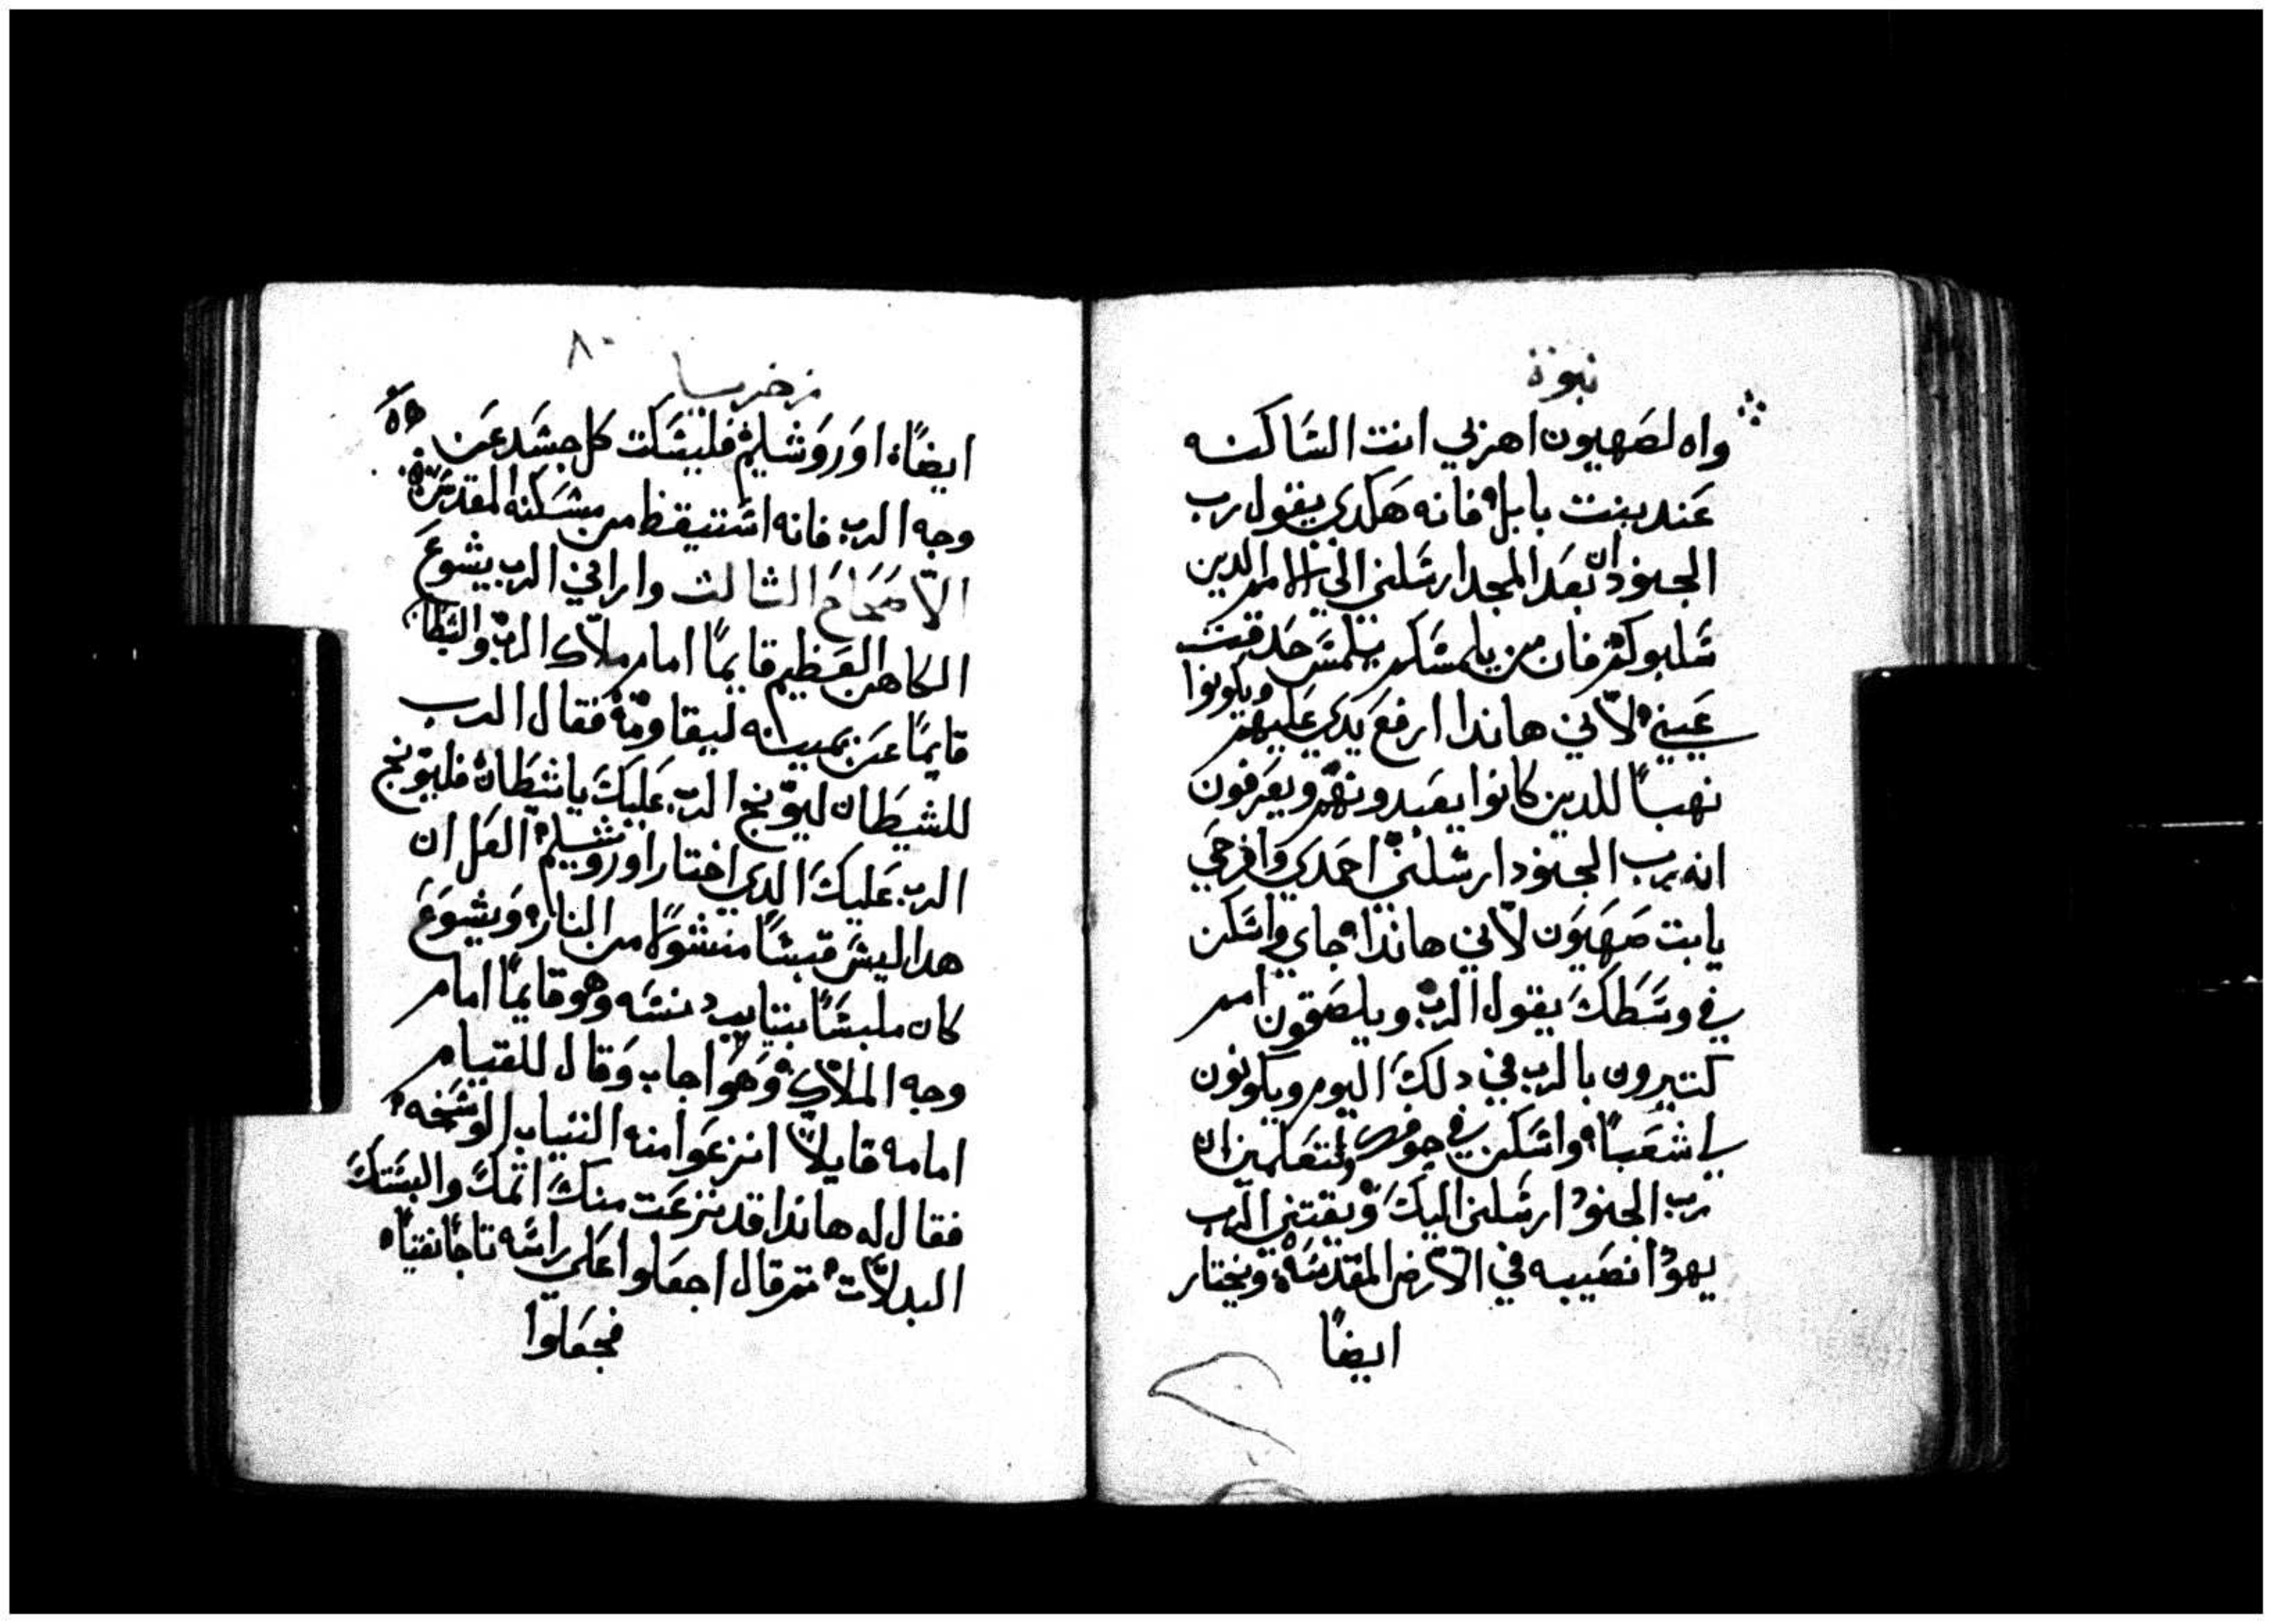 نبوة
واه لصهيون اهربي انت الساكنه
عند بنت بابل فانه هكدي يقول رب
الجنود ان بعد المجد ارسلني الي الامم الدين
سلبوكم فان من يلمسكم يلمس حدقت
عيني لاني هاندا ارفع يدي عليهم ويكونوا
نهباً للدين كانوا يعبدونهم ويعرفون
انه رب الجنود ارسلني احمدي وافرحي
يابت صهيون لاني هاندا جاي واسكن
في وسطك يقول الرب ويلصقون امم
كتيرون بالرب في دلك اليوم ويكونون
لي شعباً واسكن في جوفك وتتعلمين ان
رب الجنود ارسلني اليك ويقتني الرب
يهودا نصيبه في الارض المقدسة ويختار
ايضاً
زخريا
٨٠
ايضاً اوروشليم فليسكت كل جسد عن
وجه الرب فانه استيقظ من مسكنه المقدس
الاصحاح الثالث واراني الرب يشوع
الكاهن العظيم قايماً امام ملاك الرب والشطان
قايماً عن يمينه ليقاومه فقال الرب
للشيطان ليوبخ الرب عليك ياشيطان فليوبخ
الرب عليك الدي اختار اوروشليم العل ان
هدا ليس قبساً منشولاً من النار ويشوع
كان ملبساً بتياب دنسه وهو قايماً امام
وجه الملاك وهو اجاب وقال للقيام
امامه قايلاً انزعوا منه التياب الوسخه
فقال له هاندا قد نزعت منك اتمك والبستك
البدلات تم قال اجعلوا علي راسه تاجاً نقياً
فجعلوا